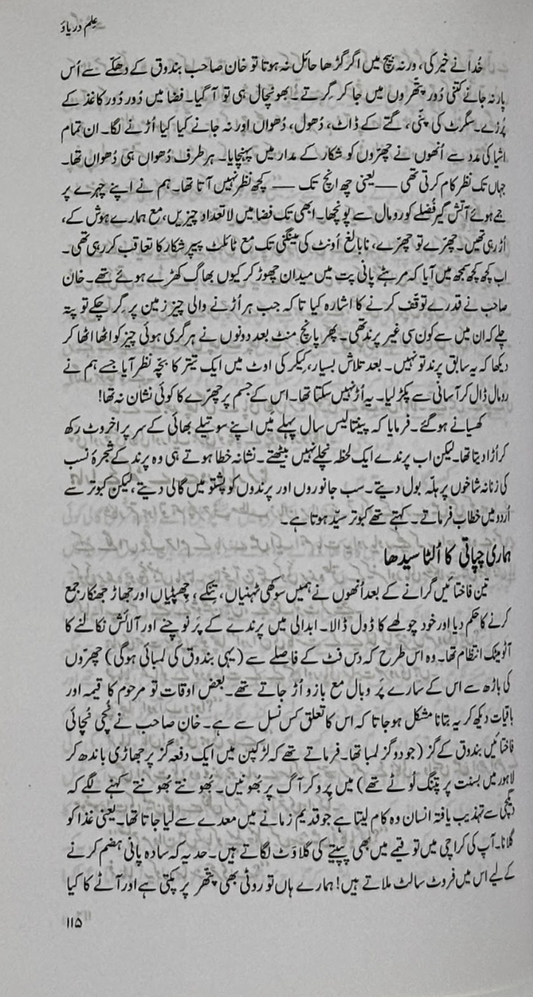 علم دریاؤ
خُدا نے خیر کی، ورنہ بیچ میں اگر گڑھا حائل نہ ہوتا تو خان صاحب بندوق کے دھکے سے اُس
پار نہ جانے کتنی دُور پتھروں میں جا کر گِرتے۔ بھونچال ہی تو آ گیا۔ فضا میں دُور دُور کاغذ کے
پُرزے، سگرٹ کی پنّی، گتے کے ڈاٹ، دُھول، دُھواں اور نہ جانے کیا کیا اُڑنے لگا۔ ان تمام
اشیا کی مدد سے اُنھوں نے چھرّوں کو شکار کے مدار میں پہنچایا۔ ہر طرف دُھواں ہی دُھواں تھا۔
جہاں تک نظر کام کرتی تھی —— یعنی چھ انچ تک —— کچھ نظر نہیں آتا تھا۔ ہم نے اپنے چہرے پر
جمے ہوئے آتش گیر فُضلے کو رومال سے پونچھا۔ ابھی تک فضا میں لاتعداد چیزیں، مع ہمارے ہوش کے،
اُڑ رہی تھیں۔ چھرّے تو چھرّے، نابالغ اُونٹ کی مینگنی تک مع ٹائلٹ پیپر شکار کا تعاقب کر رہی تھی۔
اب کچھ کچھ سمجھ میں آیا کہ مرہٹے پانی پت میں میدان چھوڑ کر کیوں بھاگ کھڑے ہوئے تھے۔ خان
صاحب نے قدرے توقف کرنے کا اشارہ کیا تا کہ جب ہر اُڑنے والی چیز زمین پر گِر چکے تو پتہ
چلے کہ ان میں سے کون سی غیر پرند تھی۔ پھر پانچ منٹ بعد دونوں نے ہر گری ہوئی چیز کو اٹھا اٹھا کر
دیکھا کہ یہ سابق پرند تو نہیں۔ بعد تلاش بسیار، کیکر کی اوٹ میں ایک تیتر کا بچّہ نظر آیا جسے ہم نے
رومال ڈال کر آسانی سے پکڑ لیا۔ یہ اُڑ نہیں سکتا تھا۔ اس کے جسم پر چھرّے کا کوئی نشان نہ تھا!
کھسیانے ہو گئے۔ فرمایا کہ پینتالیس سال پہلے میں اپنے سوتیلے بھائی کے سر پر اخروٹ رکھ
کر اُڑا دیتا تھا۔ لیکن اب پرندے ایک لحظہ نچلے نہیں بیٹھتے۔ نشانہ خطا ہوتے ہی وہ پرند کے شجرۂ نسب
کی زنانہ شاخوں پر ہلّہ بول دیتے۔ سب جانوروں اور پرندوں کو پشتو میں گالی دیتے، لیکن کبوتر سے
اُردو میں خطاب فرماتے۔ کہتے تھے کبوتر سیّد ہوتا ہے۔
ہماری چپاتی کا اُلٹا سیدھا
تین فاختائیں گرانے کے بعد اُنھوں نے ہمیں سوکھی ٹہنیاں، تنکے، چھپٹیاں اور جھاڑ جھنکار جمع
کرنے کا حکم دیا اور خود چولھے کا ڈول ڈالا۔ ابدالی میں پرندے کے پَر نوچنے اور آلائش نکالنے کا
آٹومیٹک انتظام تھا۔ وہ اس طرح کہ دس فٹ کے فاصلے سے (یہی بندوق کی لمبائی ہوگی) چھرّوں
کی باڑھ سے اس کے سارے پَر و بال مع بازو اُڑ جاتے تھے۔ بعض اوقات تو مرحوم کا قیمہ اور
باقیات دیکھ کر یہ بتانا مشکل ہو جاتا کہ اس کا تعلق کس نسل سے ہے۔ خان صاحب نے نُچی نُچائی
فاختائیں بندوق کے گز (جو دو گز لمبا تھا۔ فرماتے تھے کہ لڑکپن میں ایک دفعہ گز پر جھاڑی باندھ کر
لاہور میں بسنت پر پتنگ لُوٹے تھے) میں پرو کر آگ پر بھونیں۔ بھونتے بھونتے کہنے لگے کہ
دیگچی سے تہذیب یافتہ انسان وہ کام لیتا ہے جو قدیم زمانے میں معدے سے لیا جاتا تھا۔ یعنی غذا کو
گلانا۔ آپ کی کراچی میں تو قیمے میں بھی پپیتے کی گلاوٹ لگاتے ہیں۔ حد یہ کہ سادہ پانی ہضم کرنے
کے لیے اس میں فروٹ سالٹ ملاتے ہیں! ہمارے ہاں تو روٹی بھی پتھر پر پکتی ہے اور آٹے کا کیا
۱۱۵